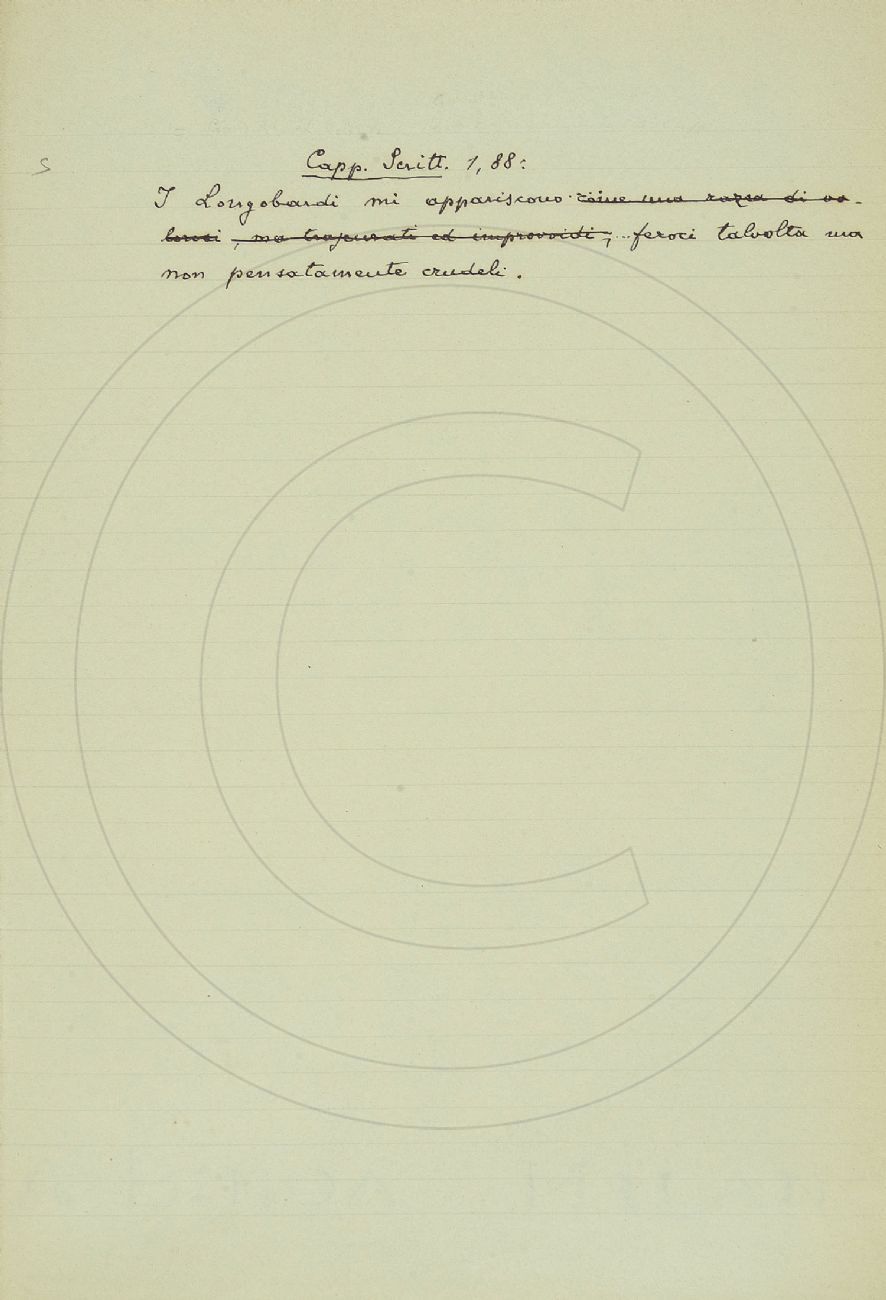 S
Capp. Scritt. 1, 88:
I Longobardi mi appariscono come una razza di va-
lorosi, ma trascurati ed improvvidi; feroci talvolta ma
non pensatamente crudeli.